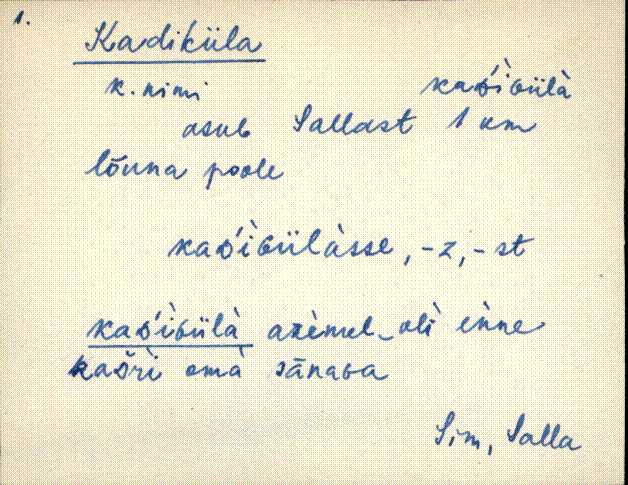 1.
Kadiküla
k. nimi kaᴅ́iɢülà
asub Sallast 1 km
lõuna poole
kaᴅ́iɢülàsse, -z, -st
kaᴅ́iɢülà azèmel oli ènne
kaᴅ̆ri omà sānaɢa
Sim, Salla